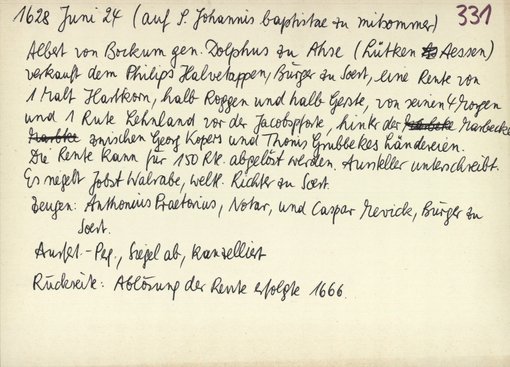 1628 Juni 24 (auf S. Johannis baptistae zu mitsommer) 331
Albert von Bockum gen. Dolphus zu Ahse (Lütken Aessen)
verkauft dem Philips Halverappen, Bürger zu Soest, eine Rente von
1 Malt Hartkorn, halb Roggen und halb Gerste, von seinen 4 Morgen
und 1 Rute Lehnland vor der Jacobspforte, hinter der Marbecke
zwischen Georg Kopers und Thonis Grubbekes Ländereien.
Die Rente kann für 150 Rt. abgelöst werden. Aussteller unterschreibt.
Es siegelt Jobst Walrabe, weltl. Richter zu Soest.
Zeugen: Anthonius Praetorius, Notar, und Caspar Mevick, Bürger zu
Soest.
Ausf.-Peg., Siegel ab, kanzelliert
Rückseite: Ablösung der Rente erfolgte 1666.